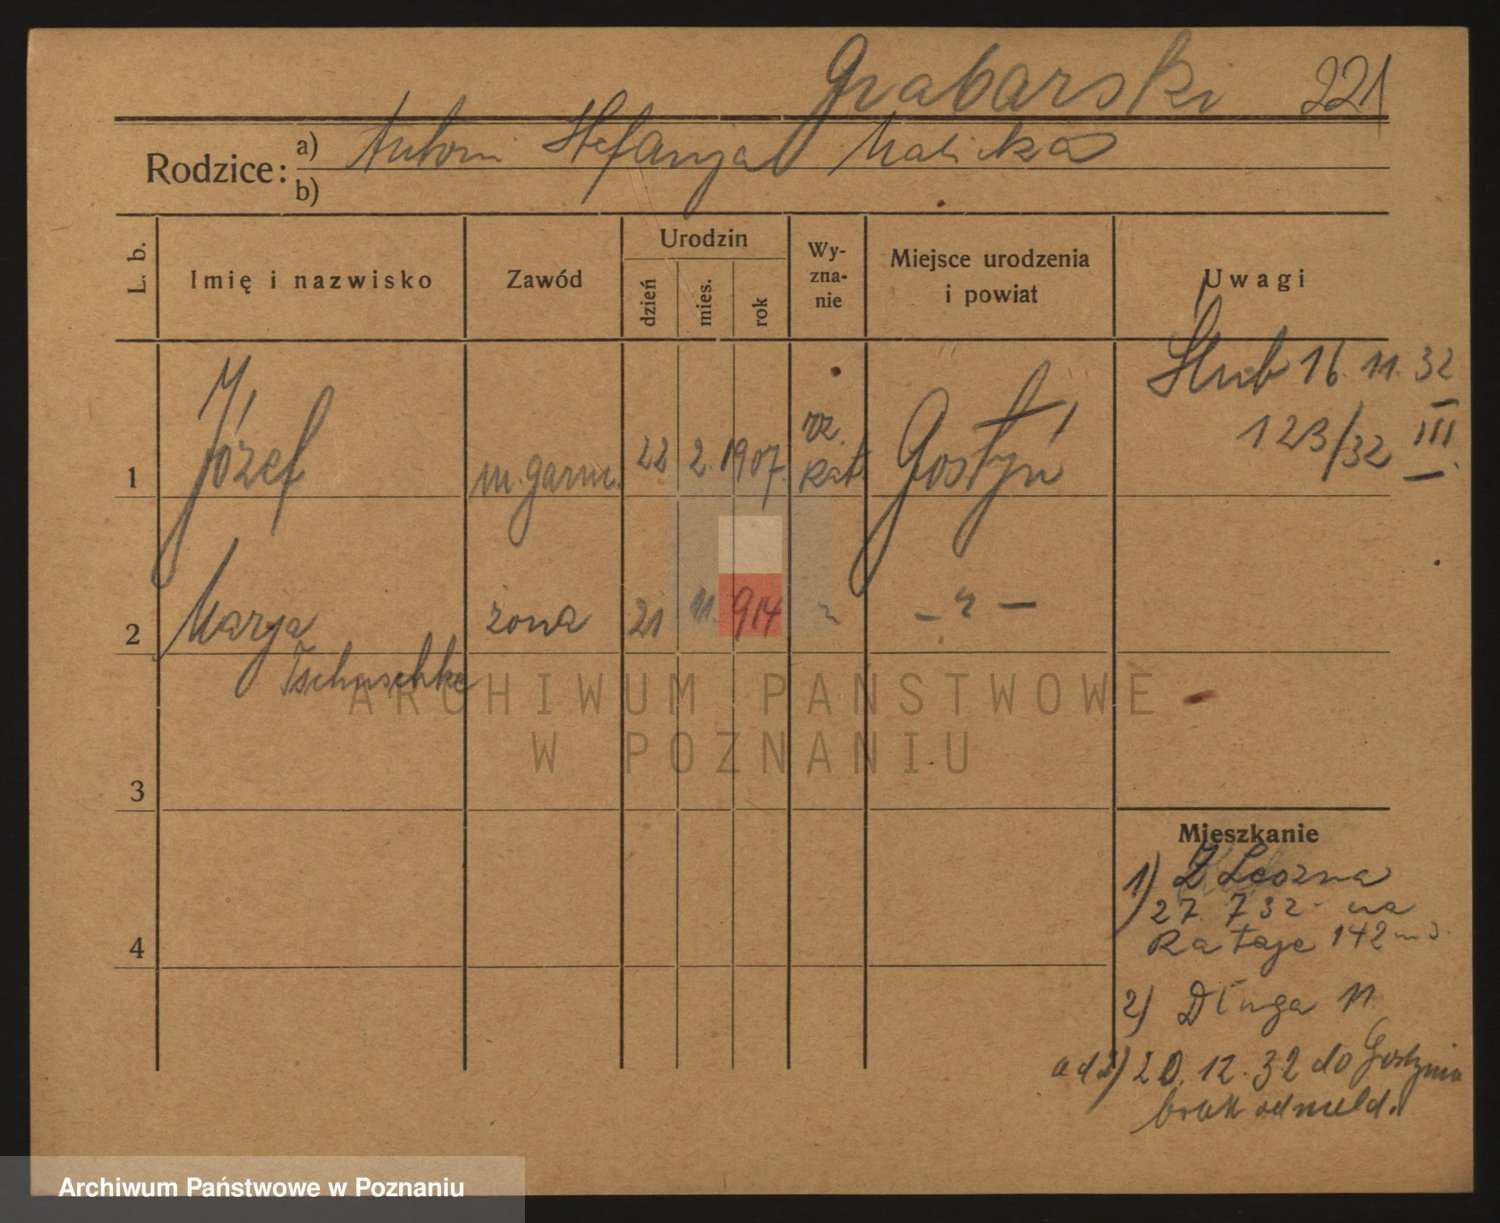 Grabarski 221
Rodzice: a) Antoni Stefanja Malicka
b)
L. b.
Imię i nazwisko
Zawód
Urodzin
dzień
mies.
rok
Wy-
zna-
nie
Miejsce urodzenia
i powiat
Uwagi
Ślub 16. 11. 32
123/32 III
1 Józef m. garnc. 22 2. 1907. rz. kat Gostyń
2 Marja żona 21 11. 914 " - " -
Tschuschke
3
4
Mieszkanie
1)
27. 7 32 na
Rataje 142
2) Długa 11.
ad 2) 20. 12. 32 do Gostynia
brak odmeld.
ARCHIWUM PAŃSTWOWE
W POZNANIU
Archiwum Państwowe w Poznaniu